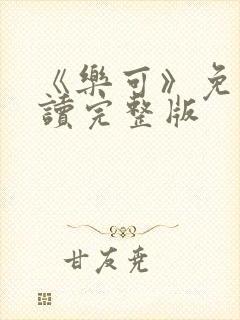 《樂可》免
讀完整版
甘友尭